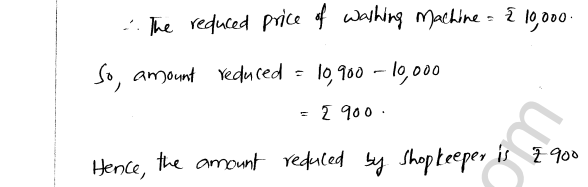 ∴ The reduced price of washing Machine = ₹ 10,000.
So, amount reduced = 10,900 – 10,000
= ₹ 900.
Hence, the amount reduced by shopkeeper is ₹ 900
om